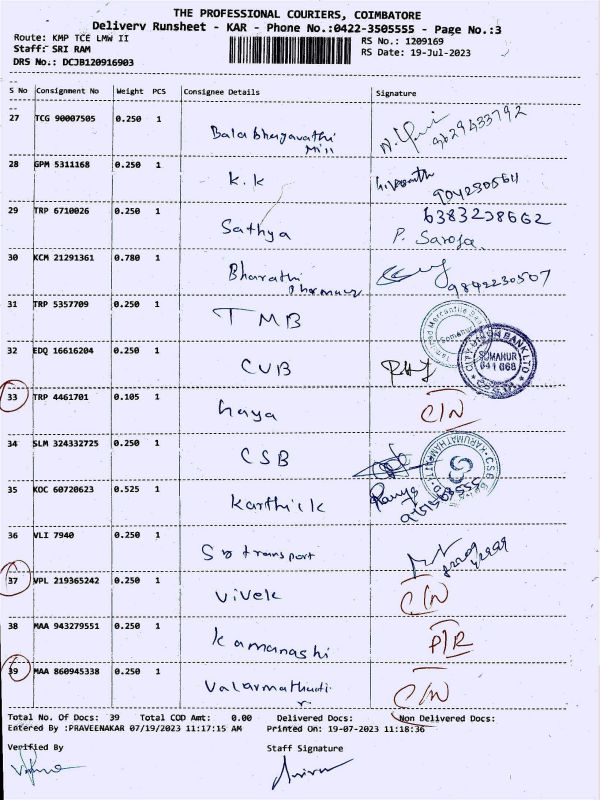 THE PROFESSIONAL COURIERS, COIMBATORE
Delivery Runsheet - KAR - Phone No.:0422-3505555 - Page No.:3
Route: KMP TCE LMW II
RS No.: 1209169
Staff: SRI RAM
RS Date: 19-Jul-2023
DRS No.: DCJB120916903
S No Consignment No Weight PCS Consignee Details Signature
27 TCG 90007505 0.250 1 Bala bhagavathi
Mill
9629433792
28 GPM 5311168 0.250 1 K.K
9042305611
29 TRP 6710026 0.250 1 Sathya 6383238662
P. Saroja
30 KCM 21291361 0.780 1 Bharathi
Pharmacy
9842230507
31 TRP 5357709 0.250 1 TMB
Somanur
32 EDQ 16616204 0.250 1 CUB
CITY UNION BANK LTD
SOMANUR
641 668
33 TRP 4461701 0.105 1 haya C/N
34 SLM 324332725 0.250 1 CSB
35 KOC 60720623 0.525 1 Karthick Ramya
36 VLI 7940 0.250 1 Sb transport
37 VPL 219365242 0.250 1 Vivek C/N
38 MAA 943279551 0.250 1 Kamanashi P/R
39 MAA 860945338 0.250 1 C/N
Total No. Of Docs: 39 Total COD Amt: 0.00 Delivered Docs: Non Delivered Docs:
Entered By :PRAVEENAKAR 07/19/2023 11:17:15 AM Printed On: 19-07-2023 11:18:36
Verified By Staff Signature